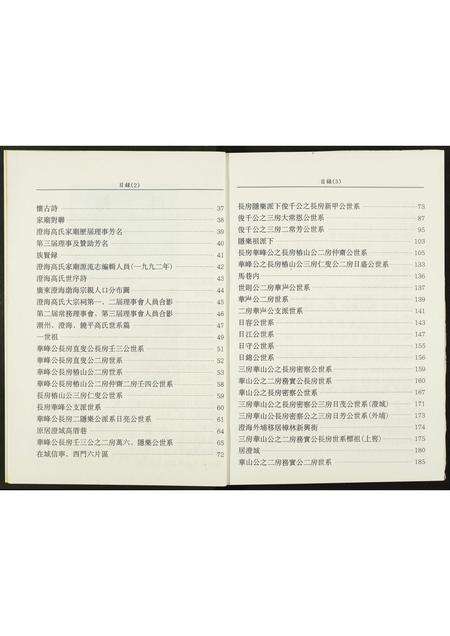 目錄(2)
懷古詩 37
家廟對聯 38
澄海高氏家廟歷屆理事芳名 39
第三屆理事及贊助芳名 40
族賢録 41
澄海高氏家廟源流志編輯人員(一九九二年) 42
澄海高氏世序詩 43
廣東澄海渤海宗親人口分布圖 44
澄海高氏大宗祠第一、二屆理事會人員合影 45
第二屆常務理事會、第三屆理事會人員合影 46
潮州、澄海、饒平高氏世系篇 47
一世祖 49
華峰公長房直叟公長房壬三公世系 51
華峰公長房直叟公二房世系 52
華峰公長房椿山公二房世系 53
華峰公長房椿山公二房仲齋二房壬四公世系 58
長房椿山公三房仁叟公世系 59
長房華峰公支派世系 60
華峰公長房二隱樂公派系日亮公世系 61
原居澄城高厝巷 64
華峰公長房壬三公之二房萬六、隱樂公世系 65
在城信寧、西門六片區 72
目録(3)
長房隱樂派下俊千公之長房新甲公世系 73
俊千公之三房大常恩公世系 87
俊千公之三房二常芳公世系 95
隱樂祖派下 103
長房華峰公之長房椿山公二房仲齋公世系 105
華峰公之長房椿山公三房仁叟公二房日盛公世系 133
馬巷內 136
世則公二房華声公世系 137
華声公二房世系 139
二房華声公支派世系 141
日容公世系 143
日江公世系 147
日守公世系 155
日錦公世系 156
三房華山公之長房密察公世系 159
華山公之二房務實公長房世系 160
華山公之長房密察公世系 167
三房華山公長房密察公之三房日茂公世系(澄城) 171
三房華山公長房密察公之三房日芳公世系(外埔) 173
澄海外埔移居樟林新興街 174
三房華山公之二房務實公長房世系標祖(上窖) 175
居澄城 180
華山公之二房務實公二房世系 185